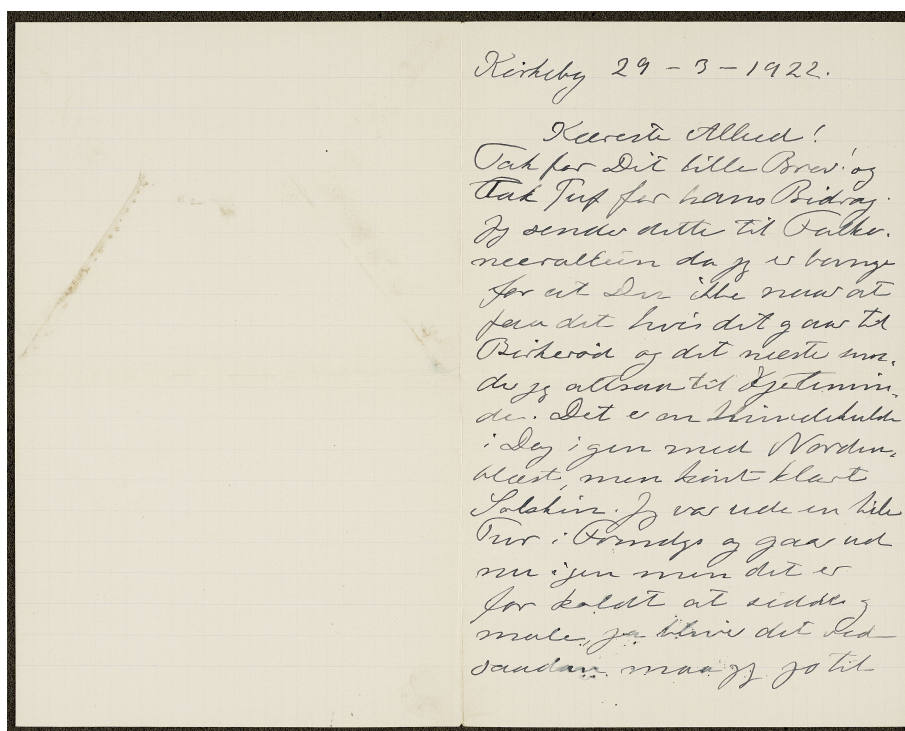 Kirkeby 29-3-1922.
Kæreste Alhed!
Tak for Dit lille Brev! og
Tak Tuf for hans Bidrag.
Jeg sender dette til Falko-
neeralleen da jeg er bange
for at Du ikke naar at
faa det hvis det gaar til
Birkerød og det næste sen-
der jeg altsaa til Kjertemin-
de. Det er en Hundekulde
i Dag igen med Norden-
blæst, men kønt klart
Solskin. Jeg var ude en lille
Tur i Formdgs og gaar ud
nu igen men det er
for koldt at sidde og
male, ja bliver det ved
saadan maa jeg jo til